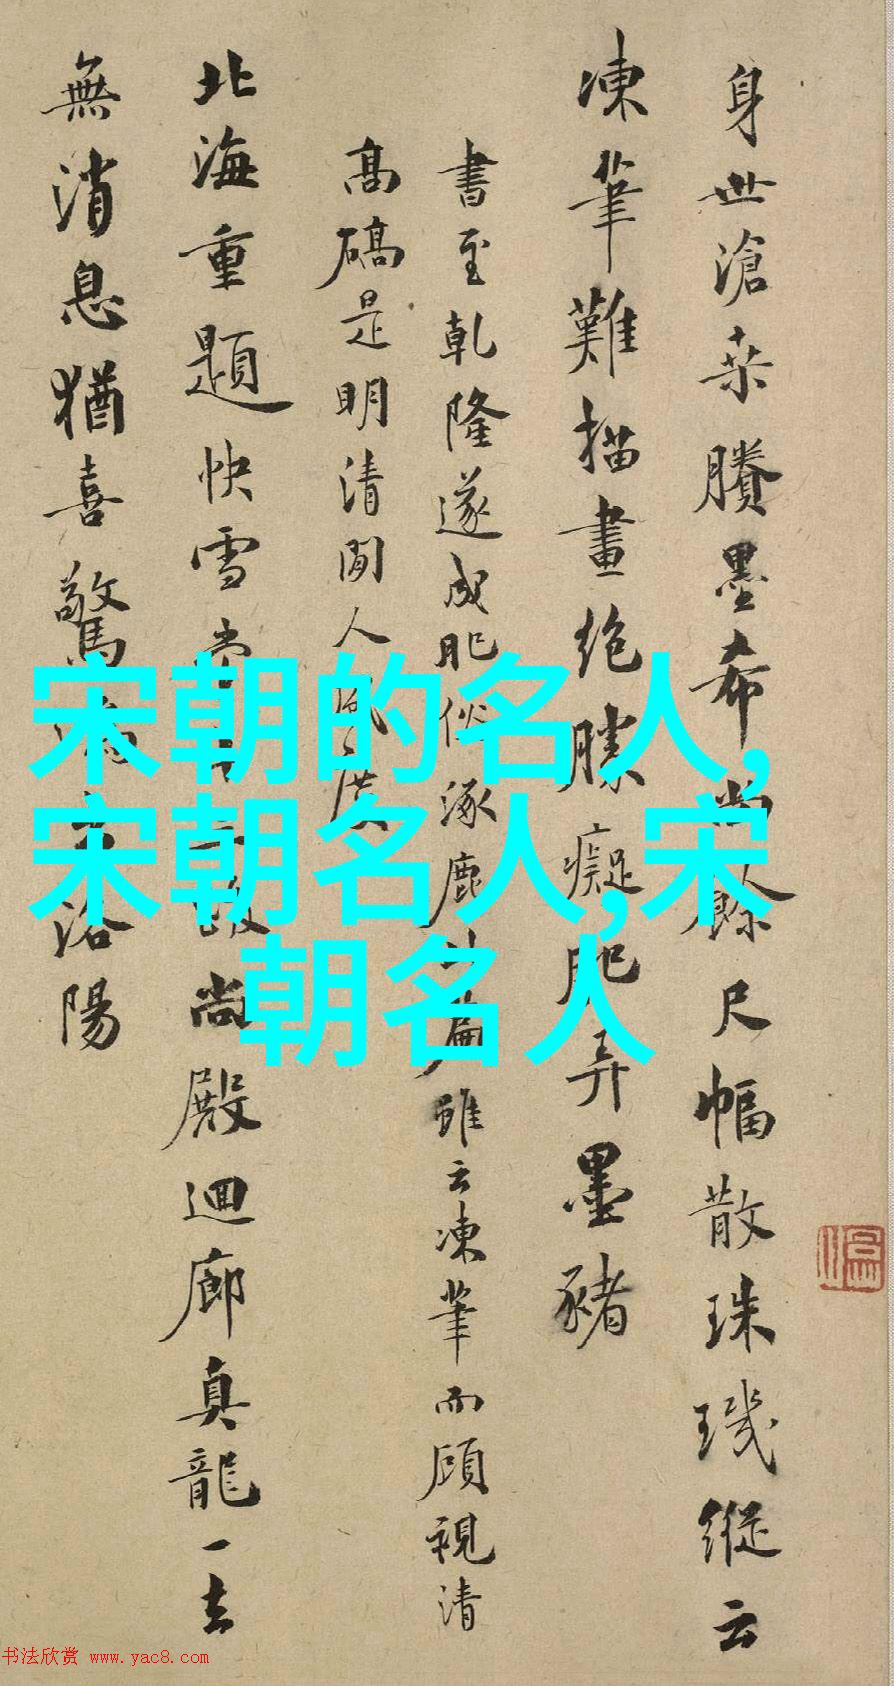 身世滄桑賸墨希尚餘尺幅散珠璣縱云
凍筆難描畫絶勝癡肥弄墨豬
書至乾隆遂成肥俗涿鹿
雖云凍筆而頎視清
高礄是明清間人風度
北海重題快雪堂
尚殿迴廊真龍一去
無消息猶喜驚
洛陽
宋朝的名人,
宋朝名人,宋
朝名人
书法欣赏 www.yac8.com